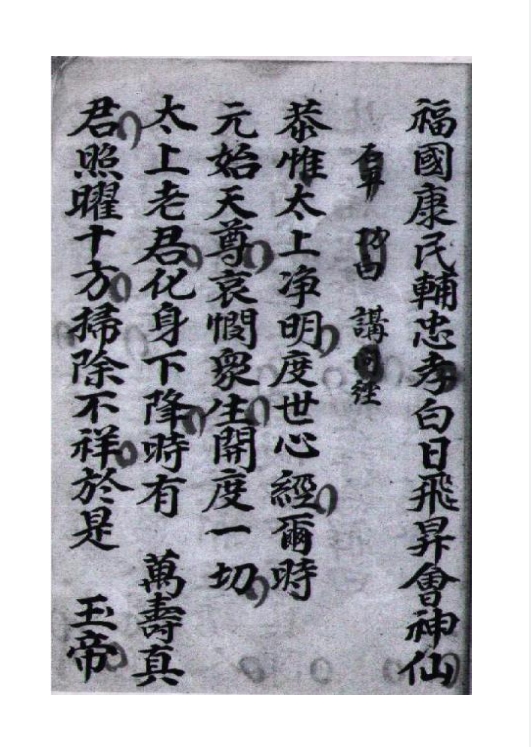 福國康民輔忠孝白日飛昇會神仙
講經
恭惟太上淨明度世心經爾時
元始天尊哀憫衆生開度一切
太上老君化身下降時有　萬壽真
君照曜十方掃除不祥於是　玉帝